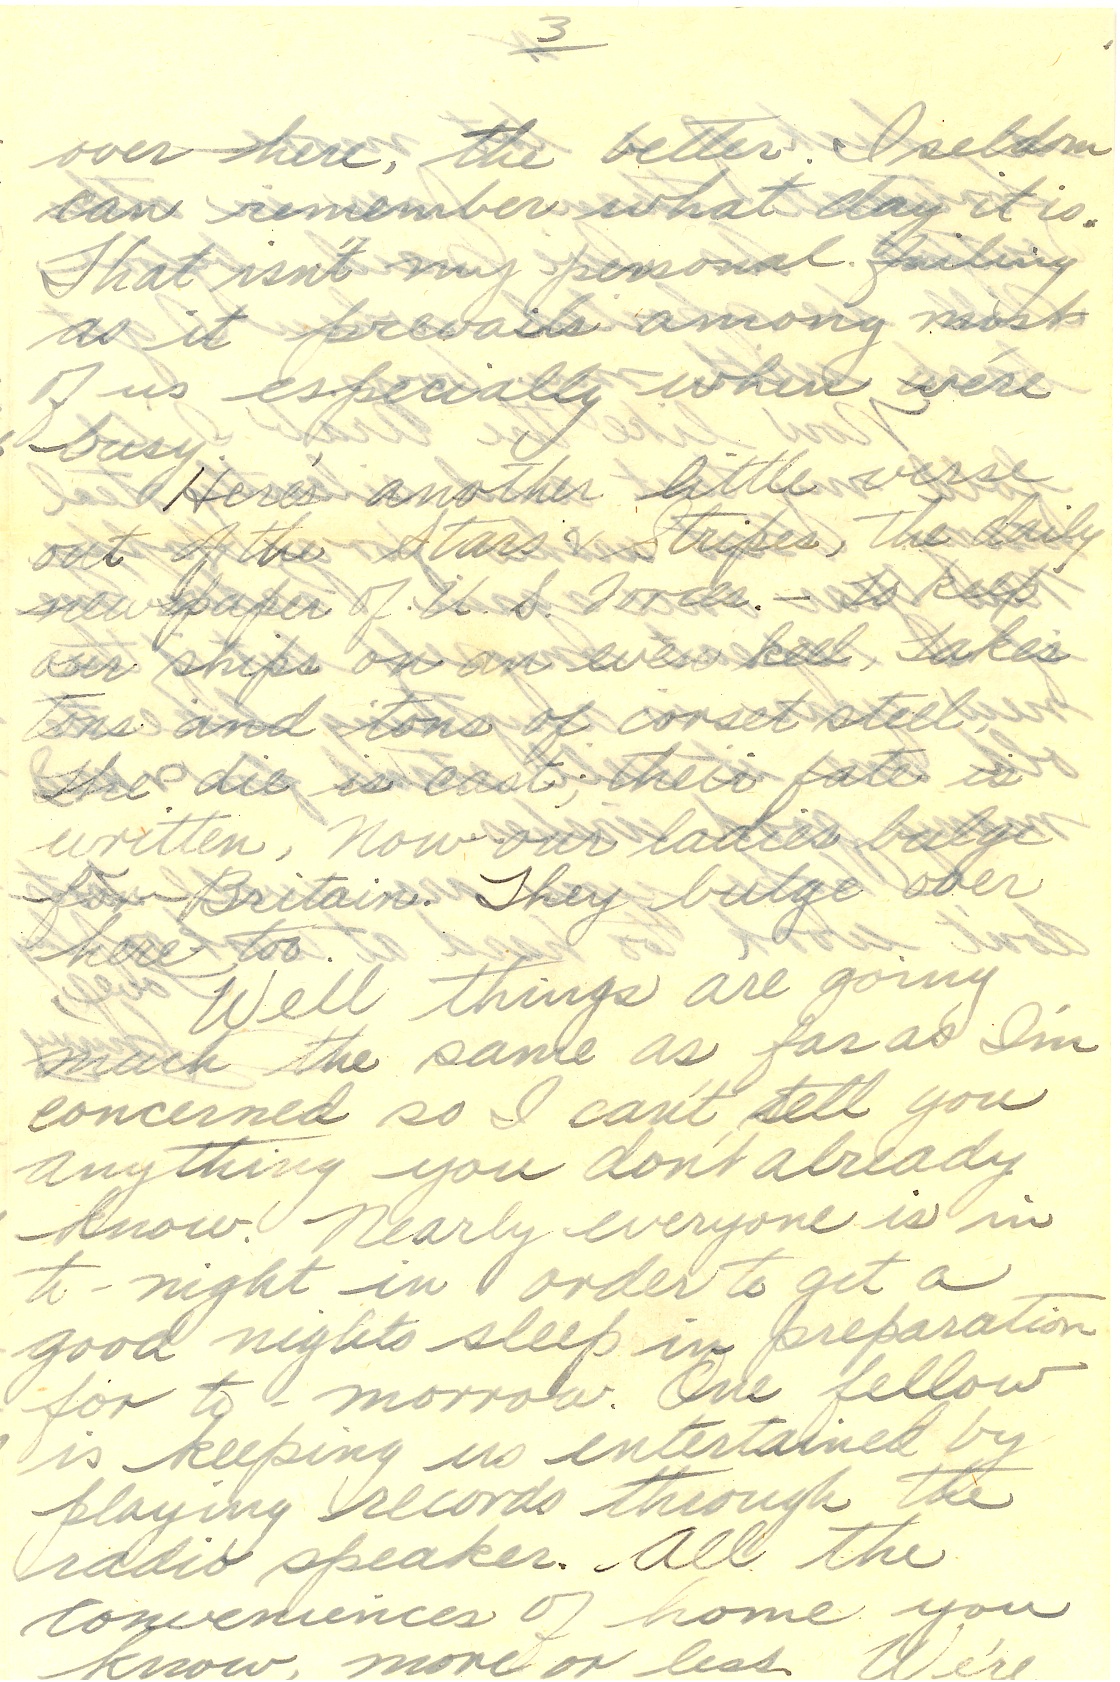 3
over here, the better. I seldom
can remember what day it is.
That isn't my personal failing
as it prevails among most
of us especially when we're
busy.
Here's another little verse
out of the Stars & Stripes, the daily
newspaper of U. S. Forces. — To keep
our ships on an even keel, Takes
tons and tons of corset steel,
The die is cast; their fate is
written, Now our ladies bulge
for Britain. They bulge over
here too.
Well things are going
much the same as far as I'm
concerned so I can't tell you
anything you don't already
know. Nearly everyone is in
to-night in order to get a
good nights sleep in preparation
for to-morrow. One fellow
is keeping us entertained by
playing records through the
radio speaker. All the
conveniences of home you
know, more or less. We're